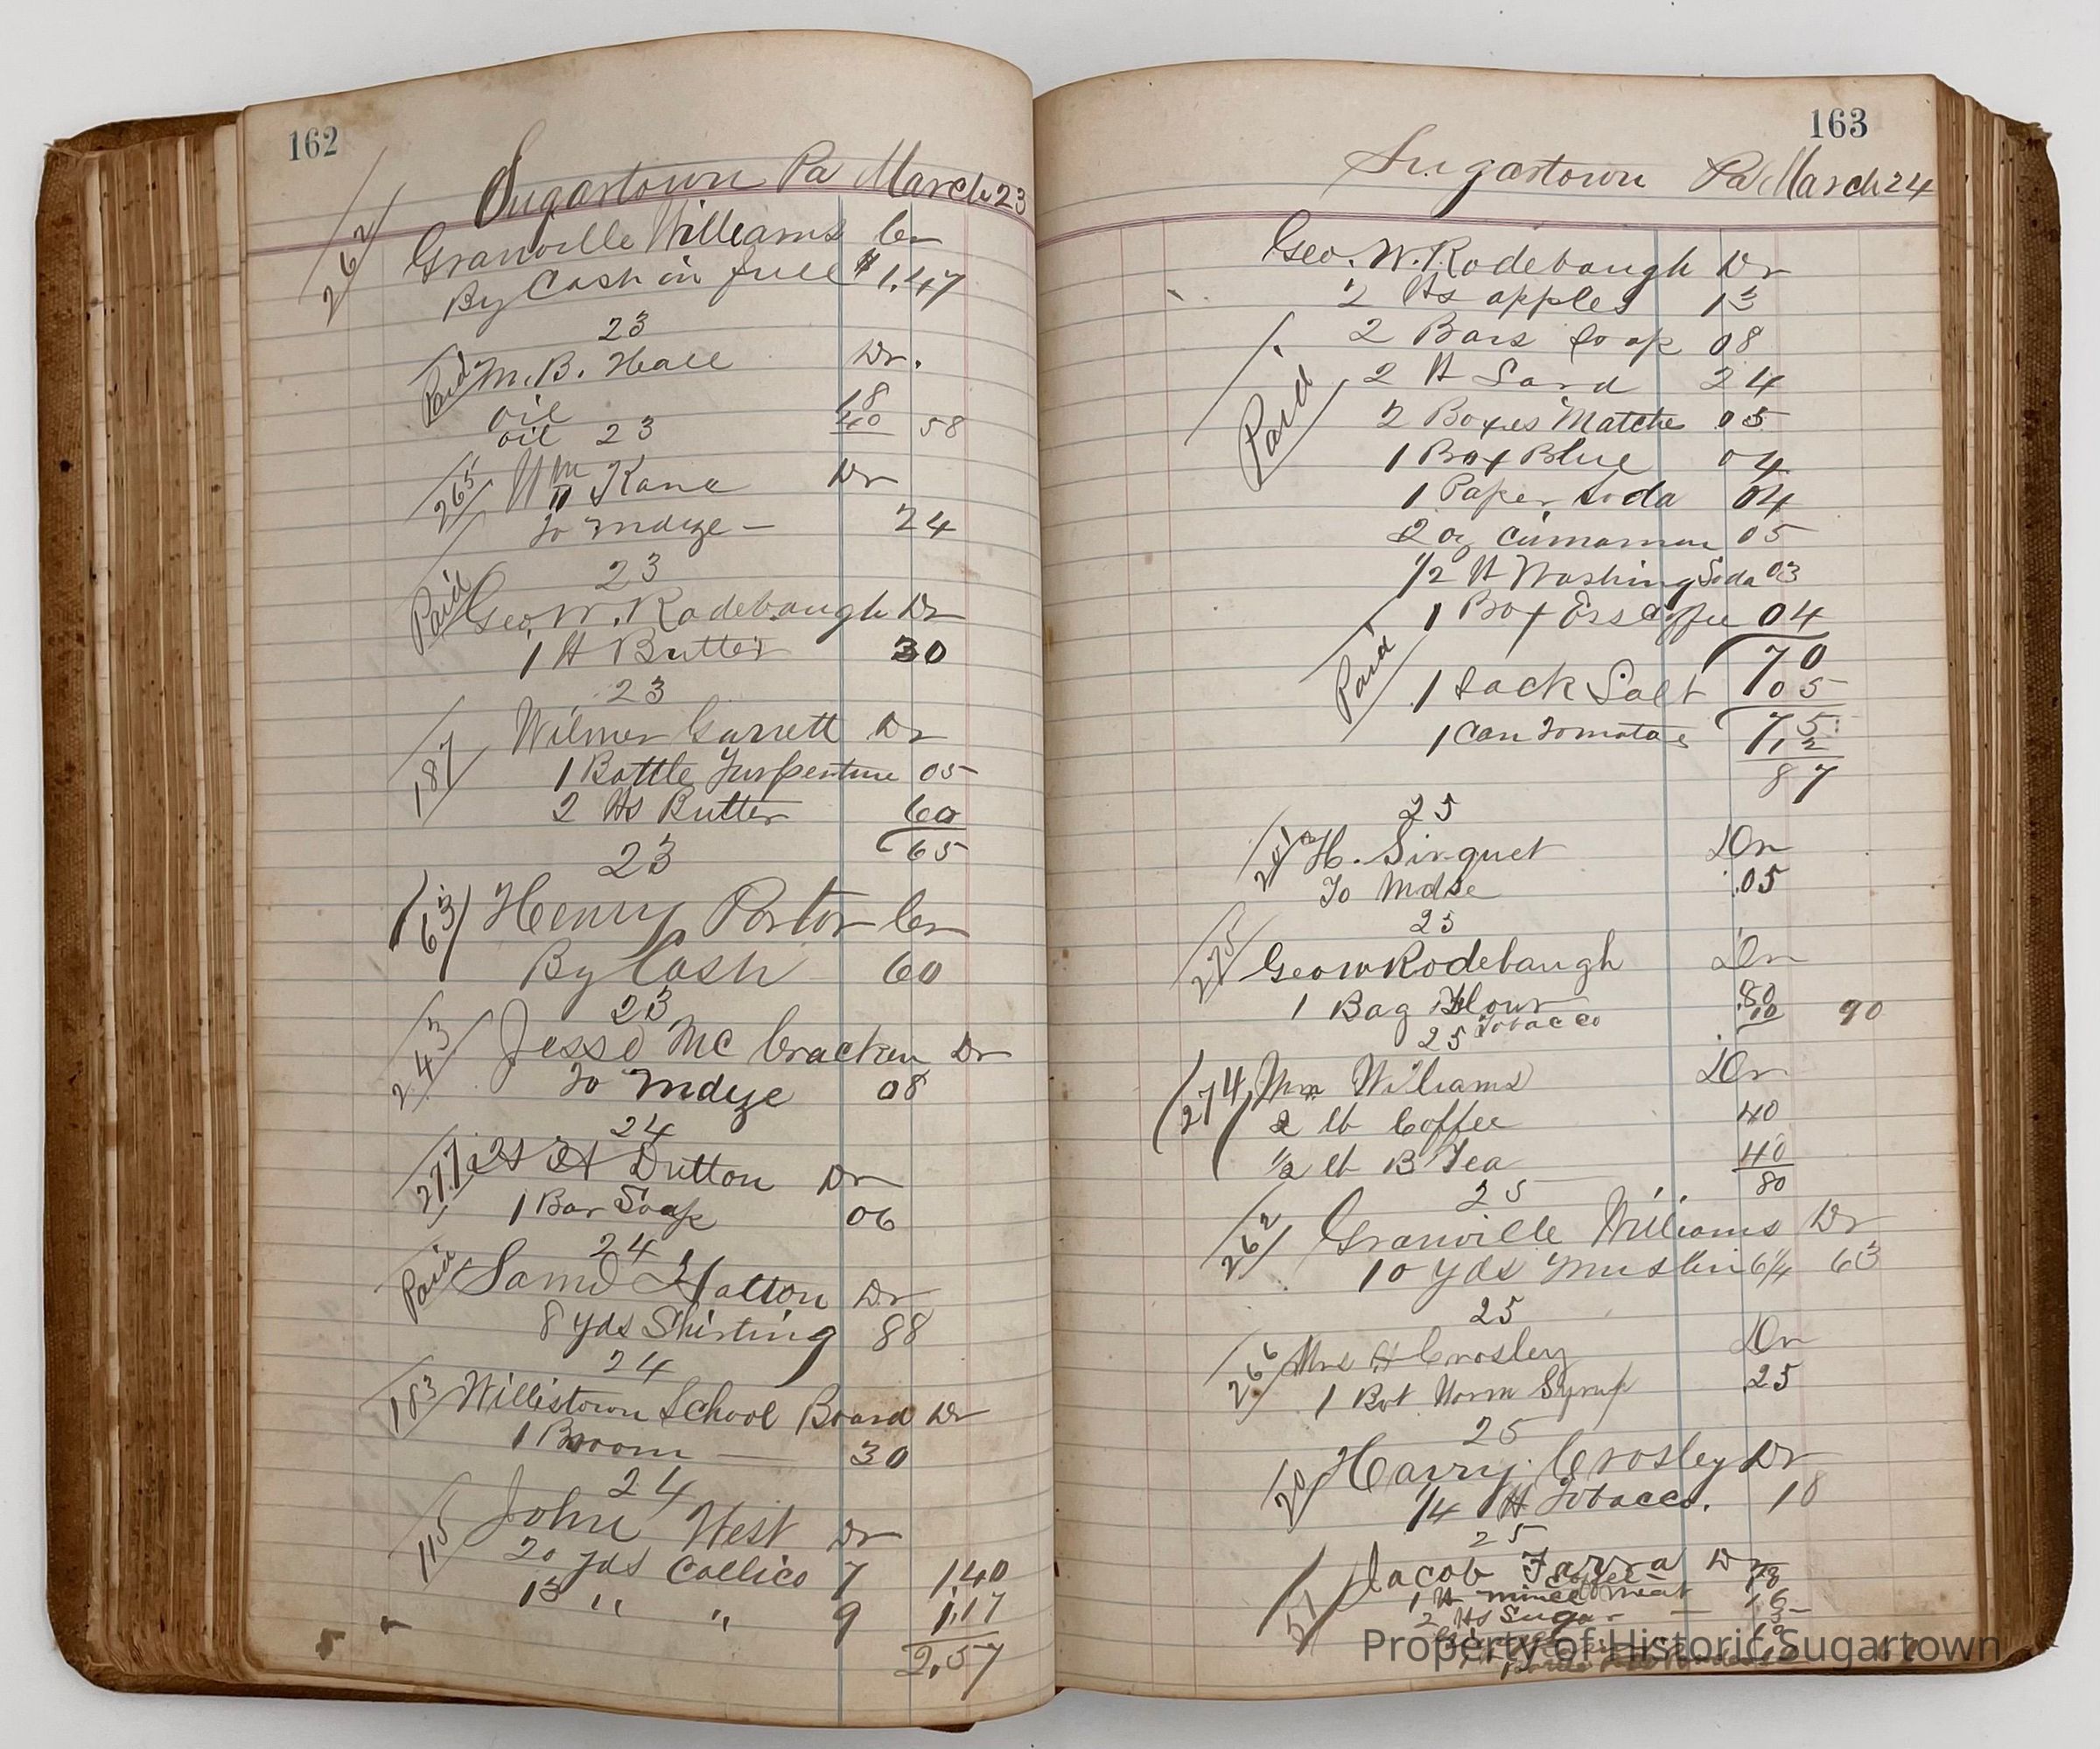 162
Sugartown Pa March 23
262 Granville Williams Cr
By Cash in full $1.47
23
Paid M. B. Hall Dr.
Oil 18
oil 40 58
23
265 Wm Kane Dr
To Mdze — 24
23
Paid Geo. W. Rodebaugh Dr
1 lb Butter 30
23
187 Wilmer Garrett Dr
1 Bottle Turpentine 05
2 lbs Butter 60
65
23
63 Henry Porter Cr
By Cash 60
23
243 Jesse McCracken Dr
To Mdze 08
24
277 Dutton Dr
1 Bar Soap 06
24
Paid Saml Hatton Dr
8 yds Shirting 88
24
183 Willistown School Board Dr
1 Broom — 30
24
115 John West Dr
20 yds Callico 7 1.40
13 " " 9 1.17
2.57
163
Sugartown Pa March 24
Geo. W. Rodebaugh Dr
2 lbs apples 13
2 Bars Soap 08
Paid 2 lb Lard 24
2 Boxes Matche 05
1 Box Blue 04
1 Paper Soda 04
2 oz cinnamon 05
1/2 lb Washing Soda 03
1 Box Ess Coffee 04
70
Paid 1 Sack Salt 05
75
1 Can Tomatoes 12
87
25
H. Sinquet Dr
To Mdse .05
25
275 Geo W Rodebaugh Dr
1 Bag Flour .80
Tobacco 10 90
25
274 Wm Williams Dr
2 lb Coffee 40
1/2 lb B Tea 40
80
25
262 Granville Williams Dr
10 yds Muslin 6 1/4 63
25
266 Mrs H Crosley Dr
1 Bot Worm Syrup 25
25
20 Harry Crosley Dr
1/4 lb Tobacco. 18
25
51 Jacob Farra Dr
Coffee
1 lb Minced Meat
2 lbs Sugar —
Property of Historic Sugartown